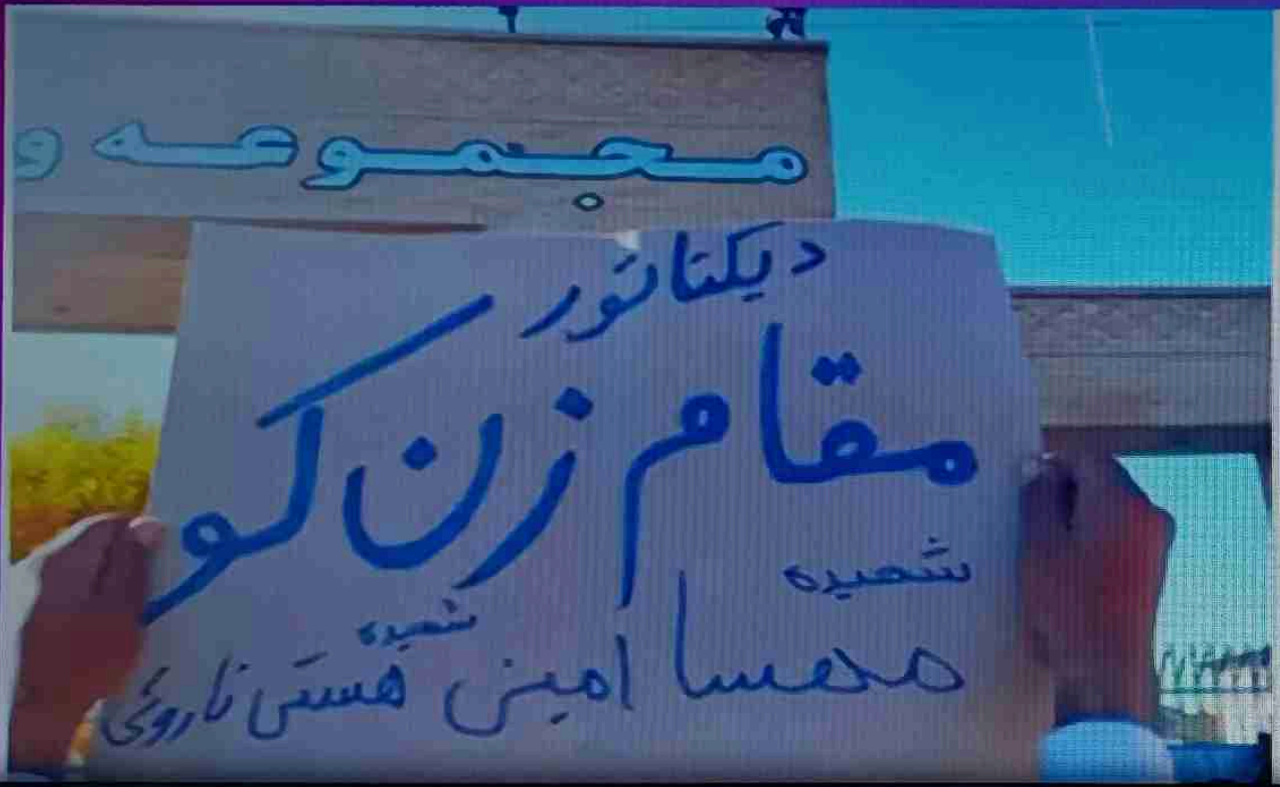 مجموعه و
دیکتاتور
مقام زن کو
شهیده
شهیده
مهسا امینی هستی ناروئی